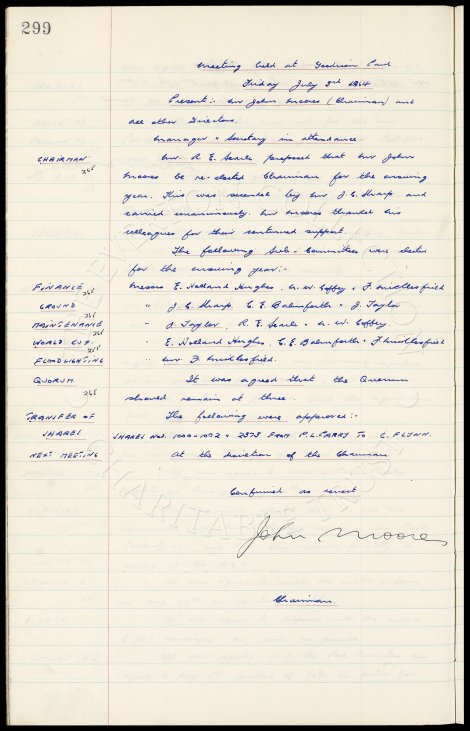 299
Meeting held at Goodison Park
Friday July 3rd 1964
Present:- Mr John Moores (Chairman) and
all other Directors.
Manager & Secretary in attendance.
CHAIRMAN Mr. R. E. Searle proposed that Mr John
Moores be re-elected Chairman for the ensuing
year. This was seconded by Mr J. C. Sharp and
carried unanimously. Mr Moores thanked his
colleagues for their continued support.
The following Sub-Committees were elected
for the ensuing year:-
FINANCE Messrs E. Holland Hughes, N. W. Coffey & F. Micklesfield
GROUND " J. C. Sharp, C. E. Balmforth & J. Taylor
MAINTENANCE " J. Taylor, R. E. Searle & N. W. Coffey
WORLD CUP " E. Holland Hughes, C. E. Balmforth & F Micklesfield
FLOODLIGHTING " Mr F. Micklesfield.
QUORUM It was agreed that the Quorum
should remain at three.
TRANSFER OF The following were approved:-
SHARES SHARES NOS. 1000-1002 & 2373 FROM P.L. CARRY TO C. FLYNN.
NEXT MEETING At the discretion of the Chairman
Confirmed as correct
John Moores
Chairman.
EVERTON
CHARITABLE TRUST